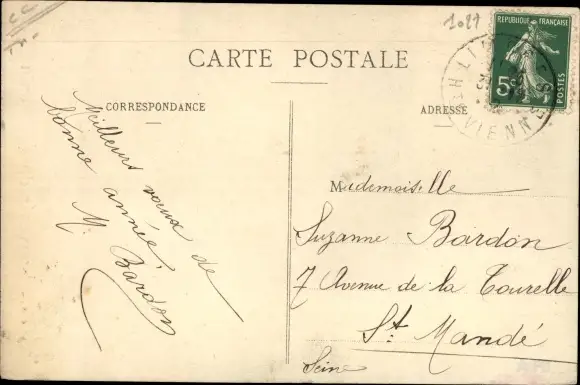 1021
RÉPUBLIQUE FRANÇAISE
5c
POSTES
VIENNE
CARTE POSTALE
CORRESPONDANCE
ADRESSE
Meilleurs vœux de
bonne année.
M. Bardon
Mademoiselle
Suzanne Bardon
7 Avenue de la Tourelle
St Mandé
Seine